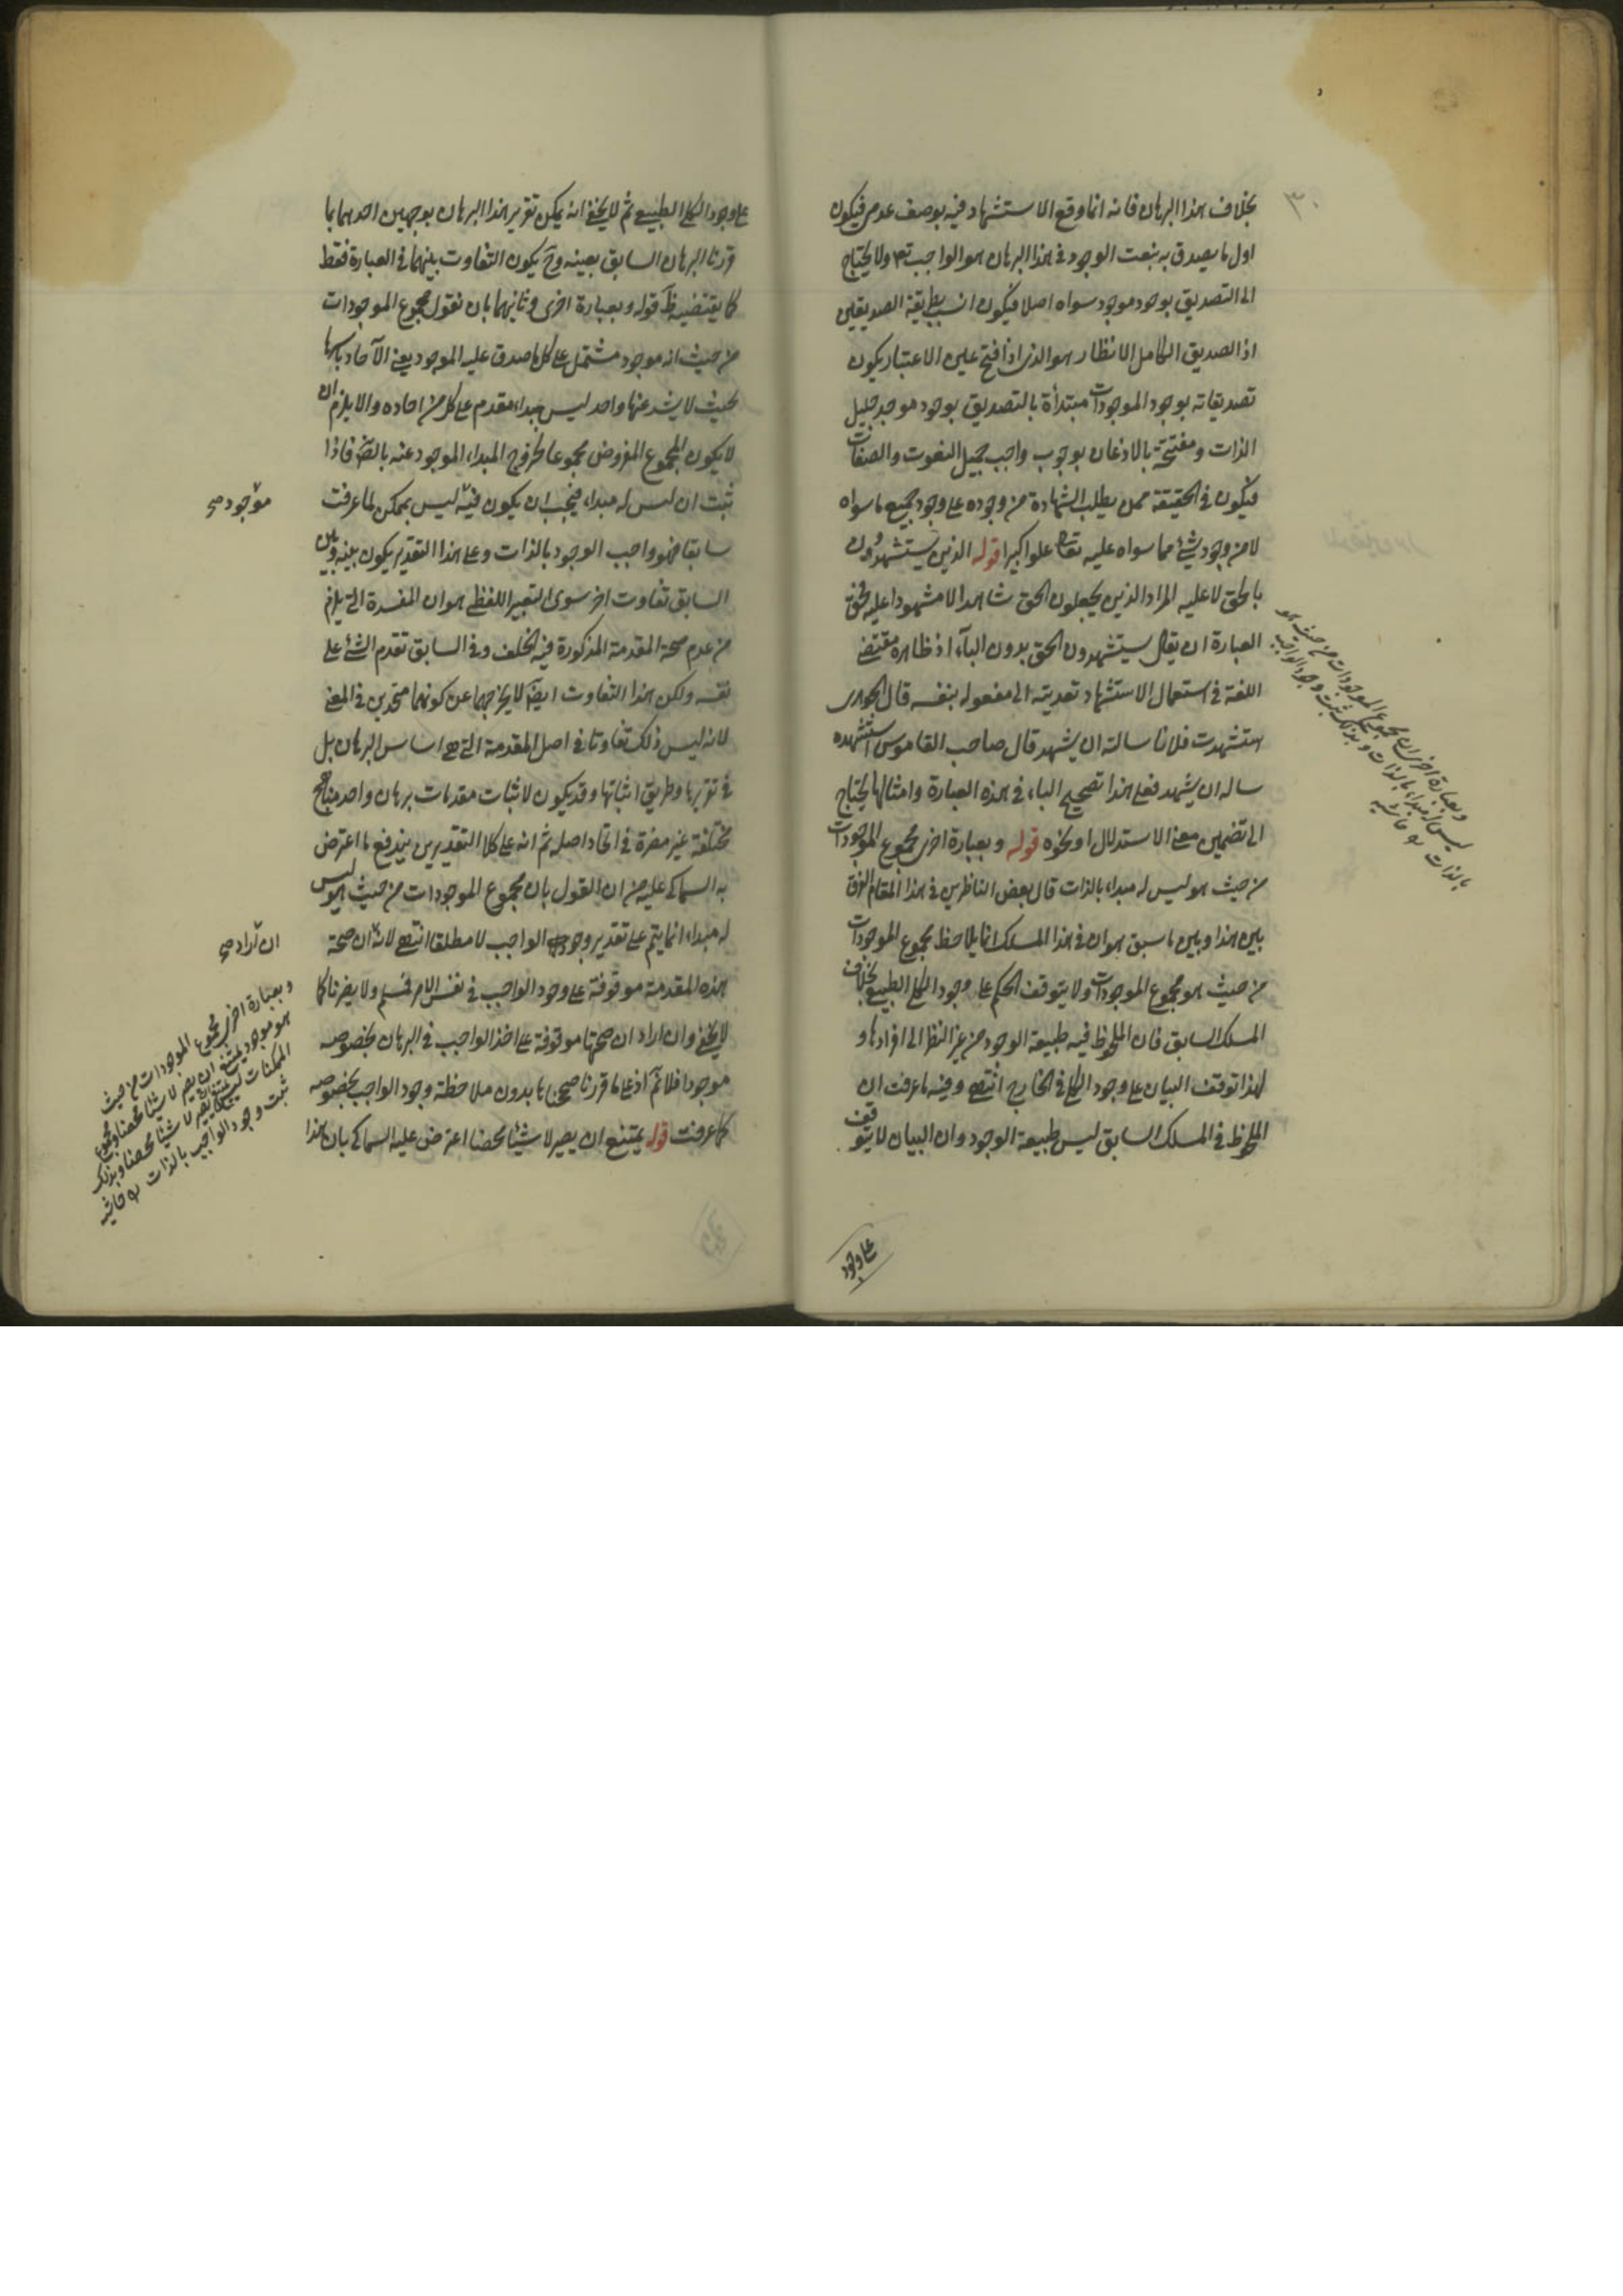 ٣٠
بخلاف هذا البرهان فانه انما وقع الاستشهاد فيه بوصف عدمى فيكون
اول ما يصدق به بنعت الوجود فى هذا البرهان هو الواجب تعـ ولا يحتاج
الى التصديق بوجود موجود سواه اصلا فيكون انسب بطريقة الصديقين
اذ الصديق الكامل الانظار هو الذى اذا فتح عين الاعتبار يكون
تصديقاته بوجود الموجودات مبتدأة بالتصديق بوجود موجد جليل
الذات ومفتتحة بالاذعان بوجوب واجب جميل النعوت والصفات
فيكون فى الحقيقة ممن يطلب الشهادة من وجوده على وجود جميع ما سواه
لا من وجود شئ مما سواه عليه تعالى علوا كبيرا قوله الذين يستشهدون
بالحق لا عليه المراد الذين يجعلون الحق شاهدا لا مشهودا عليه فحق
العبارة ان يقال يستشهدون الحق بدون الباء اذ ظاهره مقتضى
اللغة فى استعمال الاستشهاد تعديته الى مفعوله بنفسه قال الجوهرى
استشهدت فلانا سالته ان يشهد قال صاحب القاموس استشهده
ساله ان يشهد فعلى هذا تصحيح الباء فى هذه العبارة وامثالها يحتاج
الى تضمين معنى الاستدلال او نحوه قوله وبعبارة اخرى مجموع الموجودات
من حيث هو ليس له مبداء بالذات قال بعض الناظرين فى هذا المقام الفرق
بين هذا وبين ما سبق هو ان فى هذا المسلك انما يلاحظ مجموع الموجودات
من حيث هو مجموع الموجودات ولا يتوقف الحكم على وجود الكلى الطبيعى بخلاف
المسلك السابق فان الملحوظ فيه طبيعة الوجود من غير النظر الى افرادها و
لهذا توقف البيان على وجود الكلى فى الخارج انتهى وفيه ما عرفت ان
الملحوظ فى المسلك السابق ليس طبيعة الوجود وان البيان لا يتوقف
على وجود
وبعبارة اخرى ان مجموع الموجودات من حيث هو
ليس له مبداء بالذات وبذلك ثبت وجود الواجب
بالذات حاشيه
على وجود الكلى الطبيعى ثم لا يخفى انه يمكن تقرير هذا البرهان بوجهين احدهما بما
قررنا البرهان السابق بعينه وح يكون التفاوت بينهما فى العبارة فقط
كما يقتضيه ظـ قوله وبعبارة اخرى وثانيهما بان نقول مجموع الموجودات
من حيث انه موجود مشتمل على كل ما صدق عليه الموجود يعنى الآحاد باسرها
بحيث لا يشذ عنها واحد ليس مبداء مقدم على كل من احاده والا يلزم ان
لا يكون المجموع المفروض مجموعا لخروج المبداء الموجود عنه بالضـ فاذا
ثبت ان ليس له مبداء فيجب ان يكون فيه ليس بممكن لما عرفت
موجود صح
سابقا فهو واجب الوجود بالذات وعلى هذا التقدير يكون بينه وبين
السابق تفاوت اخر سوى التعبير اللفظى هو ان المفسدة التى يلزم
من عدم صحة المقدمة المذكورة فيه الخلف وفى السابق تقدم الشئ على
نفسه ولكن هذا التفاوت ايضا لا يخرجهما عن كونهما متحدين فى المعنى
لانه ليس ذلك تفاوتا فى اصل المقدمة التى هى اساس البرهان بل
فى تقريرها وطريق اثباتها وقد يكون لاثبات مقدمات برهان واحد مناهج
مختلفة غير مضرة فى اتحاد اصله ثم انه على كلا التقديرين يندفع ما اعترض
به السماكى عليه من ان القول بان مجموع الموجودات من حيث هو ليس
له مبداء انما يتم على تقدير وجود الواجب لا مطلقا انتهى لانه ان صحة
ان اراد صح
هذه المقدمة موقوفة على وجود الواجب فى نفس الامر فمسلم ولا يضرنا كما
لا يخفى وان اراد ان صحتها موقوفة على اخذ الواجب فى البرهان بخصوصه
موجودا فلا تم اذ على ما قررنا صححناها بدون ملاحظة وجود الواجب بخصوصه
كما عرفت قوله يمتنع ان يصير لا شيئا محضا اعترض عليه السماكى بان هذا
وبعبارة اخرى مجموع الموجودات من حيث
هو موجود يمتنع ان يصير لا شيئا محضا ومجموع
الممكنات ليس يمتنع ان يصير لا شيئا محضا وبذلك
ثبت وجود الواجب بالذات حاشيه